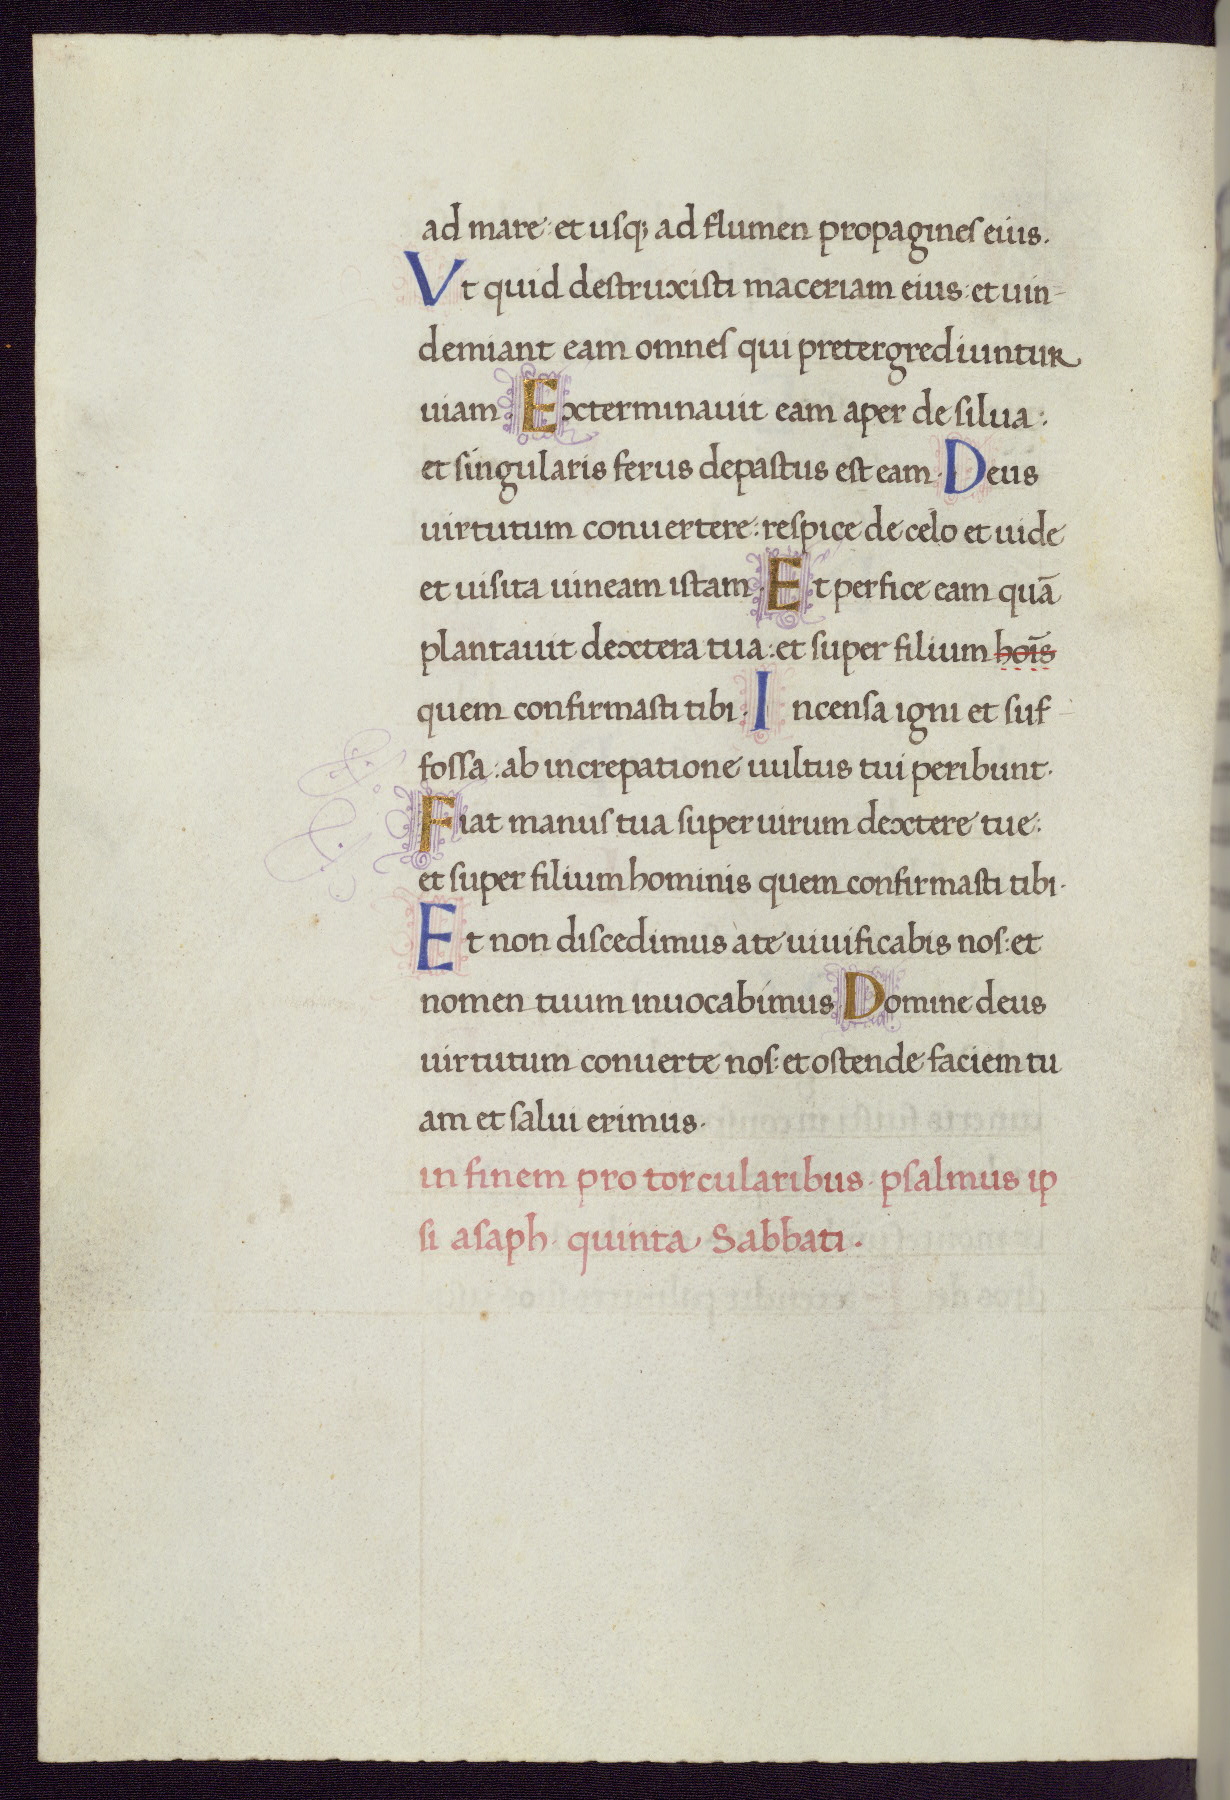 ad mare : et usq; ad flumen propagines eius.
Vt quid destruxisti maceriam eius : et uin-
demiant eam omnes qui pretergrediuntur
uiam. Exterminauit eam aper de silua :
et singularis ferus depastus est eam. Deus
uirtutum conuertere : respice de celo et uide
et uisita uineam istam. Et perfice eam quā
plantauit dextera tua : et super filium hoı̄s
quem confirmasti tibi. Incensa igni et suf-
fossa : ab increpatione uultus tui peribunt.
Fiat manus tua super uirum dextere tue :
et super filium hominis quem confirmasti tibi.
Et non discedimus a te uiuificabis nos : et
nomen tuum inuocabimus. Domine deus
uirtutum conuerte nos : et ostende faciem tu
am et salui erimus.
in finem pro torcularibus. psalmus ip
si asaph. quinta Sabbati.